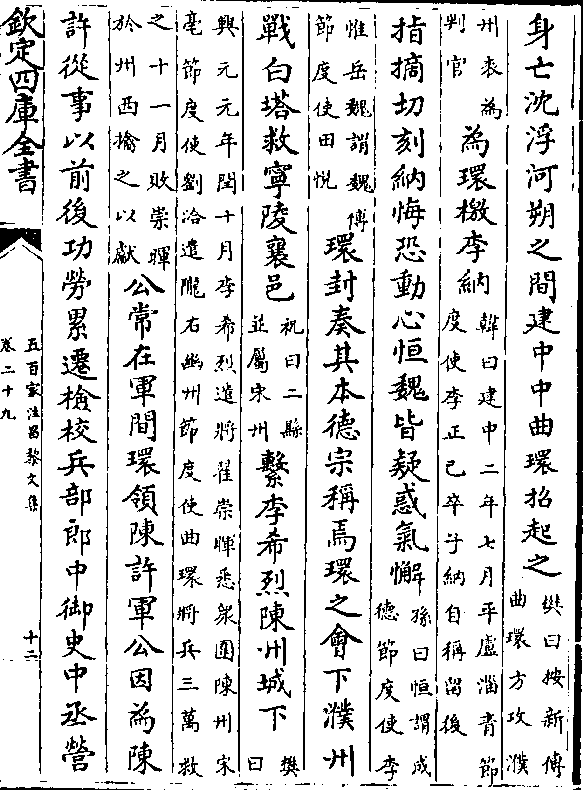 身亡沈浮河朔之間建中中曲環招起之樊曰按新傳
曲環方攻濮
州表為
判官
為環檄李納韓曰建中二年七月平盧淄青節
度使李正己卒子納自稱留後
指摘切刻納悔恐動心恒魏皆疑惑氣懈孫曰恒謂成
德節度使李
惟岳魏謂魏傅
節度使田悅
環封奏其本德宗稱焉環之會下濮州
戰白塔救寧陵襄邑祝曰二縣
並屬宋州
繫李希烈陳州城下樊
曰
興元元年閏十月李希烈遣將翟崇暉悉衆圍陳州宋
亳節度使劉洽遣隴右幽州節度使曲環將兵三萬救
之十一月敗崇暉
於州西擒之以獻
公常在軍間環領陳許軍公因為陳
許從事以前後功勞累遷檢校兵部郎中御史中丞營
欽定四庫全書
五百家注昌黎文集
卷二十九
十二